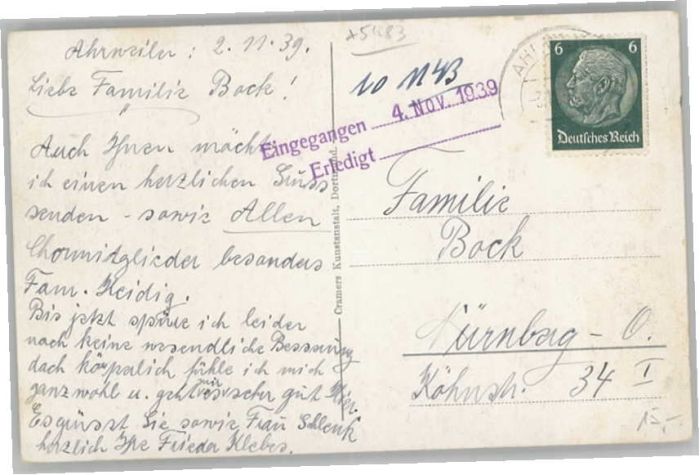 Ahrweiler: 2.11.39.
Liebe Familie Bock!
Auch Ihnen möcht
ich einen herzlichen Gruss
senden - sowie Allen
Chormitglieder besonders
Fam. Heidig.
Bis jetzt spüre ich leider
noch keine wesendliche Besserung
doch körperlich fühle ich mich
ganz wohl u. geht mir sehr gut hier.
Es grüsst Sie sowie Frau Schlenk
herzlich Ihr Frieder Klebes.
Cramers Kunstanstalt, Dortmund.
+5483
10 11 43
Eingegangen 4. Nov. 1939
Erledigt
AH
6 6
Deutsches Reich
Familie
Bock
Nürnberg - O.
Köhnstr. 34 I
15,-